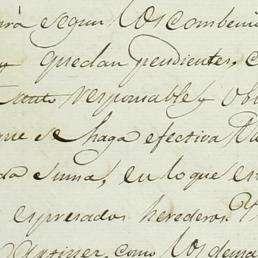 segun los combeni
quedan pendientes, c
responsable y ob
que se haga efectiva
da suma, en lo que es
espresados herederos.
como los dema